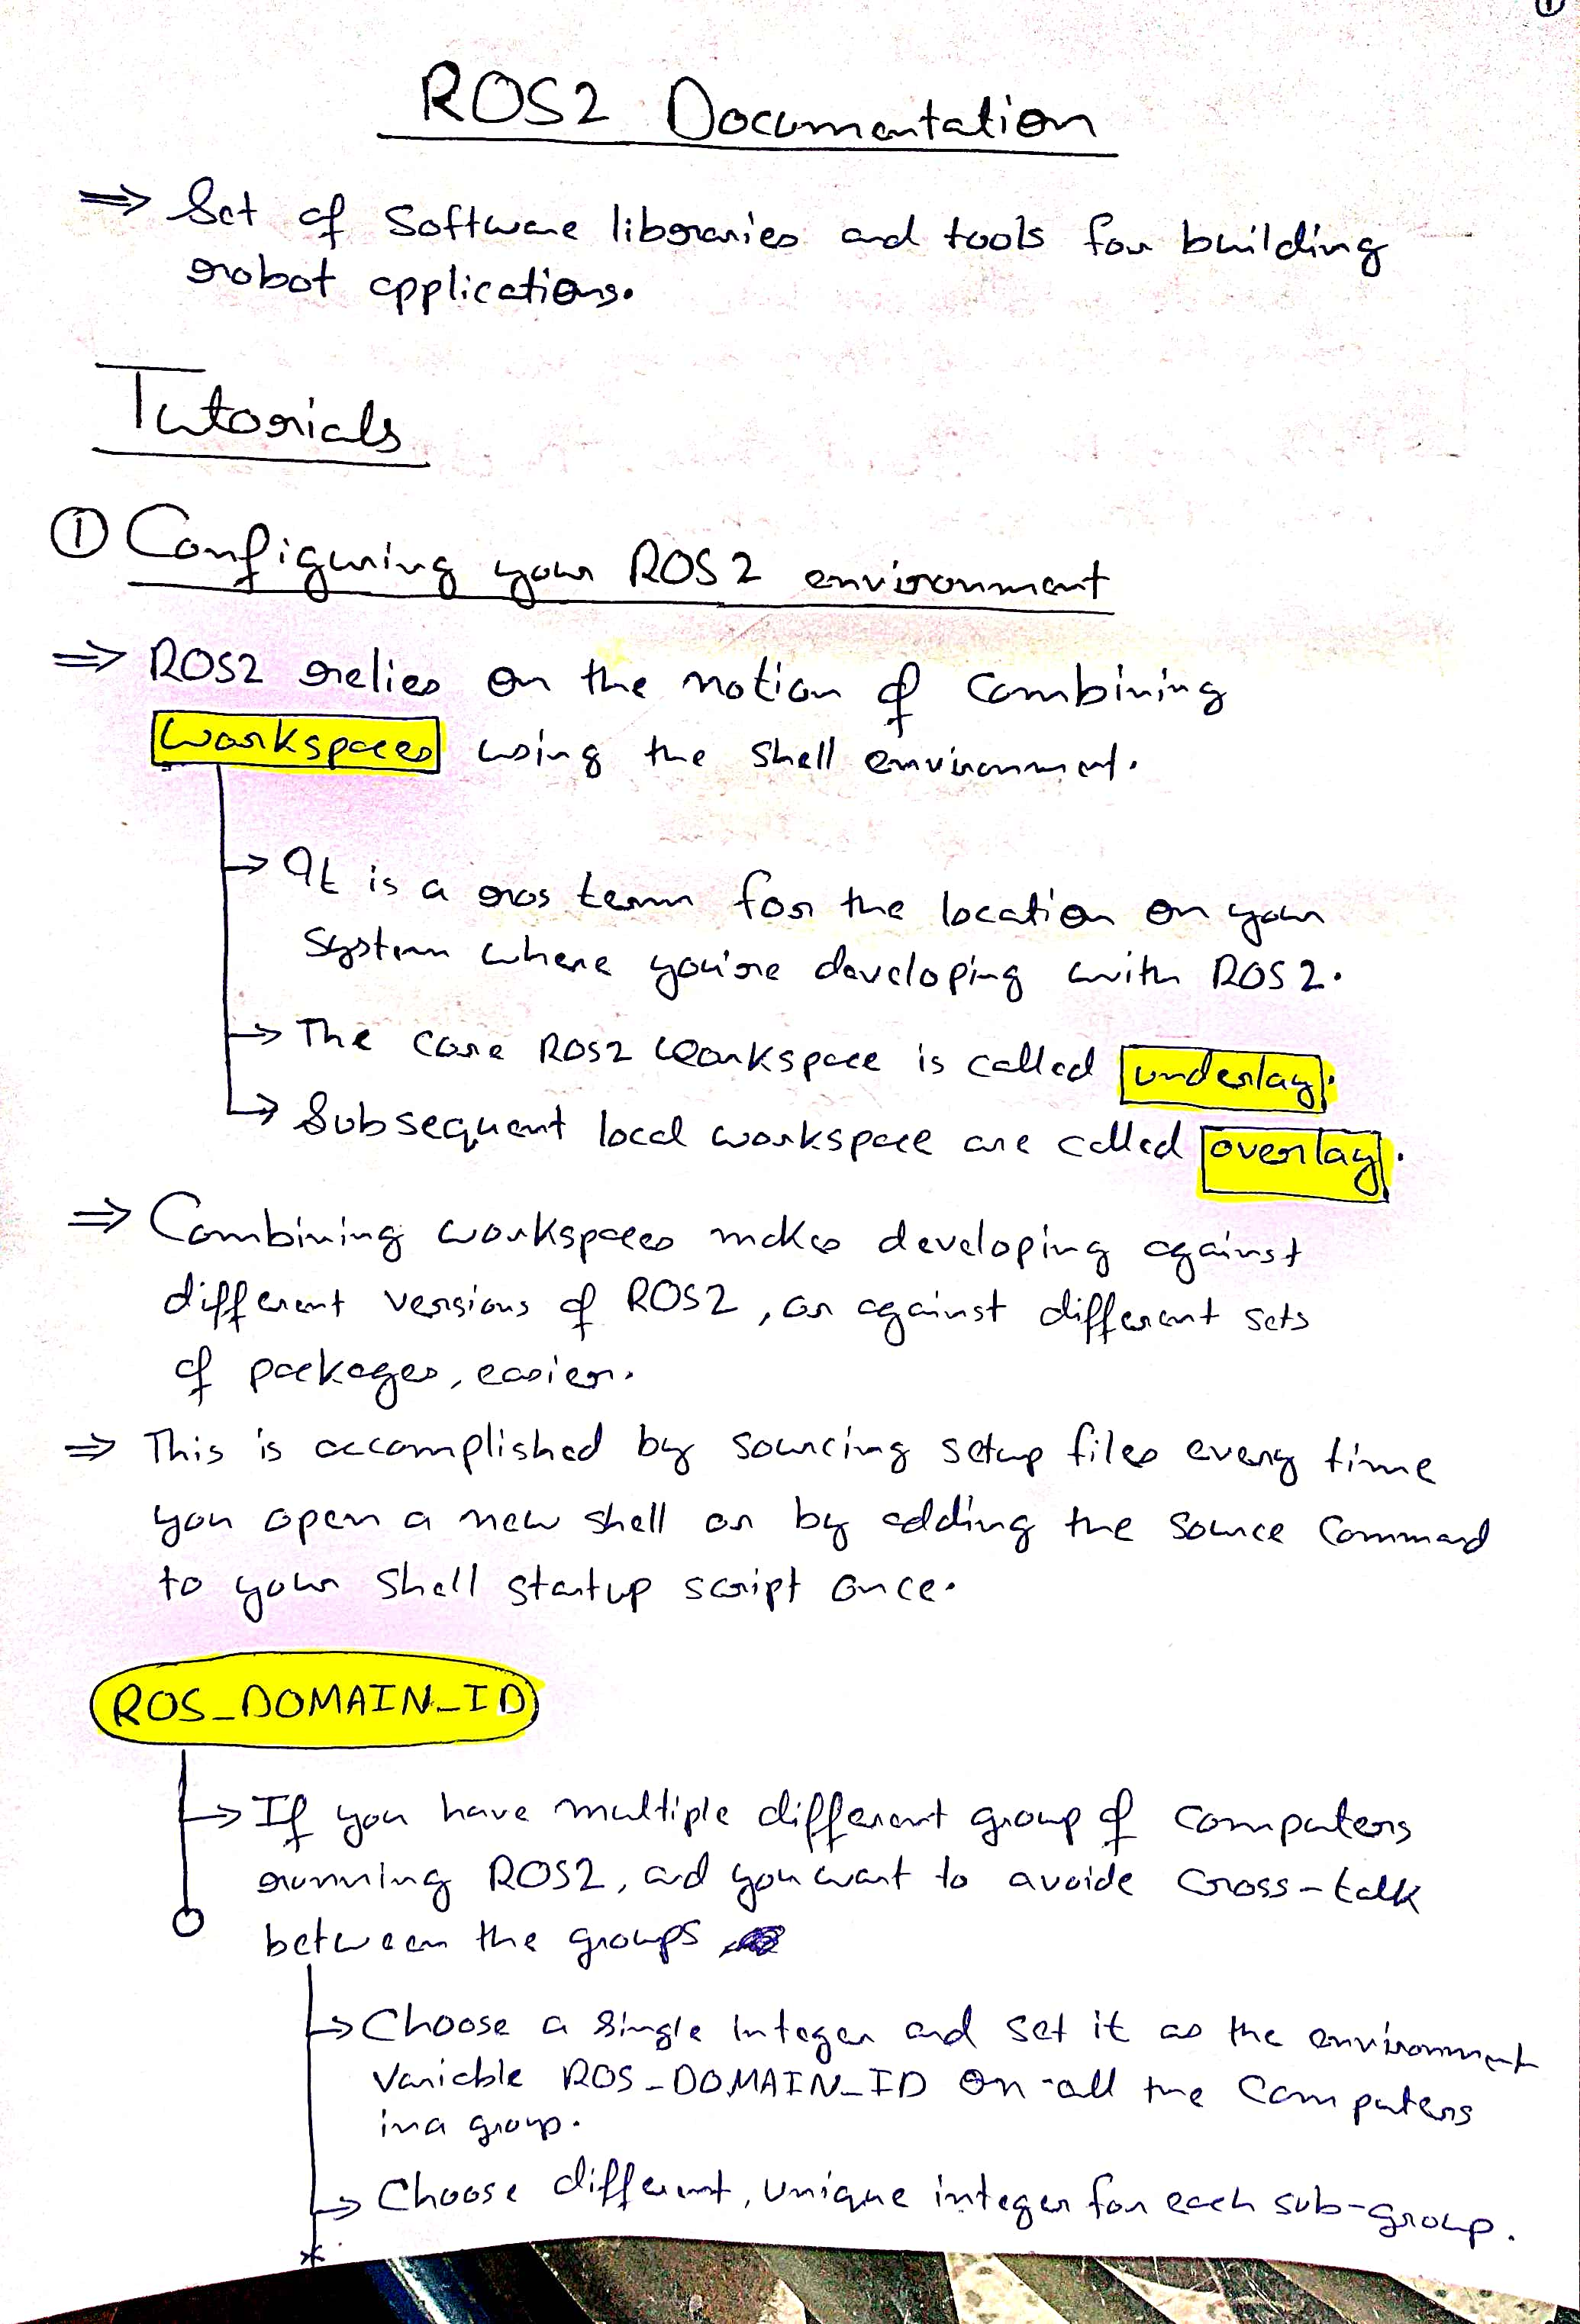 ①
ROS2 Documentation
⇒ Set of Software libraries and tools for building
robot applications.
Tutorials
① Configuring your ROS2 environment
⇒ ROS2 relies on the notion of combining
workspaces using the shell environment.
→ It is a ros term for the location on your
system where you're developing with ROS2.
→ The core ROS2 workspace is called underlay.
→ Subsequent local workspace are called overlay.
⇒ Combining workspaces makes developing against
different versions of ROS2, or against different sets
of packages, easier.
⇒ This is accomplished by sourcing setup files every time
you open a new shell or by adding the source command
to your shell startup script once.
ROS_DOMAIN_ID
→ If you have multiple different group of computers
running ROS2, and you want to avoide cross-talk
between the groups
→ Choose a single integer and set it as the environment
variable ROS_DOMAIN_ID on all the computers
in a group.
→ Choose different, unique integer for each sub-group.
*